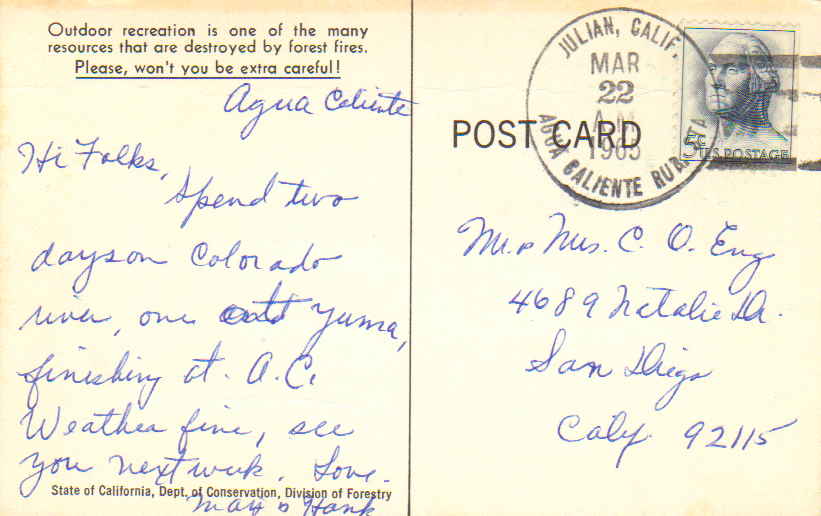 Outdoor recreation is one of the many
resources that are destroyed by forest fires.
Please, won't you be extra careful!
Agua Caliente
Hi Folks,
Spend two
days on Colorado
river, one at Yuma,
finishing at A.C.
Weather fine, see
you next week. Love.
May & Hank
State of California, Dept. of Conservation, Division of Forestry
POST CARD
JULIAN, CALIF.
MAR
22
1965
AGUA CALIENTE RUR. STA
5¢
U.S. POSTAGE
Mr & Mrs. C. O. Eng
4689 Natalie Dr.
San Diego
Calif. 92115